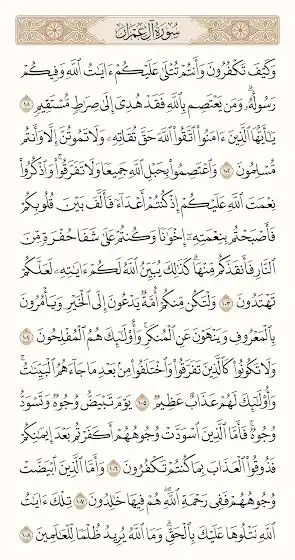 سُورَةُ آلِ عِمْرَانَ
وَكَيْفَ تَكْفُرُونَ وَأَنتُمْ تُتْلَىٰ عَلَيْكُمْ ءَايَٰتُ ٱللَّهِ وَفِيكُمْ
رَسُولُهُۥ ۗ وَمَن يَعْتَصِم بِٱللَّهِ فَقَدْ هُدِىَ إِلَىٰ صِرَٰطٍ مُّسْتَقِيمٍ ١٠١
يَٰٓأَيُّهَا ٱلَّذِينَ ءَامَنُوا۟ ٱتَّقُوا۟ ٱللَّهَ حَقَّ تُقَاتِهِۦ وَلَا تَمُوتُنَّ إِلَّا وَأَنتُم
مُّسْلِمُونَ ١٠٢ وَٱعْتَصِمُوا۟ بِحَبْلِ ٱللَّهِ جَمِيعًا وَلَا تَفَرَّقُوا۟ ۚ وَٱذْكُرُوا۟
نِعْمَتَ ٱللَّهِ عَلَيْكُمْ إِذْ كُنتُمْ أَعْدَآءً فَأَلَّفَ بَيْنَ قُلُوبِكُمْ
فَأَصْبَحْتُم بِنِعْمَتِهِۦٓ إِخْوَٰنًا وَكُنتُمْ عَلَىٰ شَفَا حُفْرَةٍ مِّنَ
ٱلنَّارِ فَأَنقَذَكُم مِّنْهَا ۗ كَذَٰلِكَ يُبَيِّنُ ٱللَّهُ لَكُمْ ءَايَٰتِهِۦ لَعَلَّكُمْ
تَهْتَدُونَ ١٠٣ وَلْتَكُن مِّنكُمْ أُمَّةٌ يَدْعُونَ إِلَى ٱلْخَيْرِ وَيَأْمُرُونَ
بِٱلْمَعْرُوفِ وَيَنْهَوْنَ عَنِ ٱلْمُنكَرِ ۚ وَأُو۟لَٰٓئِكَ هُمُ ٱلْمُفْلِحُونَ ١٠٤
وَلَا تَكُونُوا۟ كَٱلَّذِينَ تَفَرَّقُوا۟ وَٱخْتَلَفُوا۟ مِنۢ بَعْدِ مَا جَآءَهُمُ ٱلْبَيِّنَٰتُ ۚ
وَأُو۟لَٰٓئِكَ لَهُمْ عَذَابٌ عَظِيمٌ ١٠٥ يَوْمَ تَبْيَضُّ وُجُوهٌ وَتَسْوَدُّ
وُجُوهٌ ۚ فَأَمَّا ٱلَّذِينَ ٱسْوَدَّتْ وُجُوهُهُمْ أَكَفَرْتُم بَعْدَ إِيمَٰنِكُمْ
فَذُوقُوا۟ ٱلْعَذَابَ بِمَا كُنتُمْ تَكْفُرُونَ ١٠٦ وَأَمَّا ٱلَّذِينَ ٱبْيَضَّتْ
وُجُوهُهُمْ فَفِى رَحْمَةِ ٱللَّهِ هُمْ فِيهَا خَٰلِدُونَ ١٠٧ تِلْكَ ءَايَٰتُ
ٱللَّهِ نَتْلُوهَا عَلَيْكَ بِٱلْحَقِّ ۗ وَمَا ٱللَّهُ يُرِيدُ ظُلْمًا لِّلْعَٰلَمِينَ ١٠٨